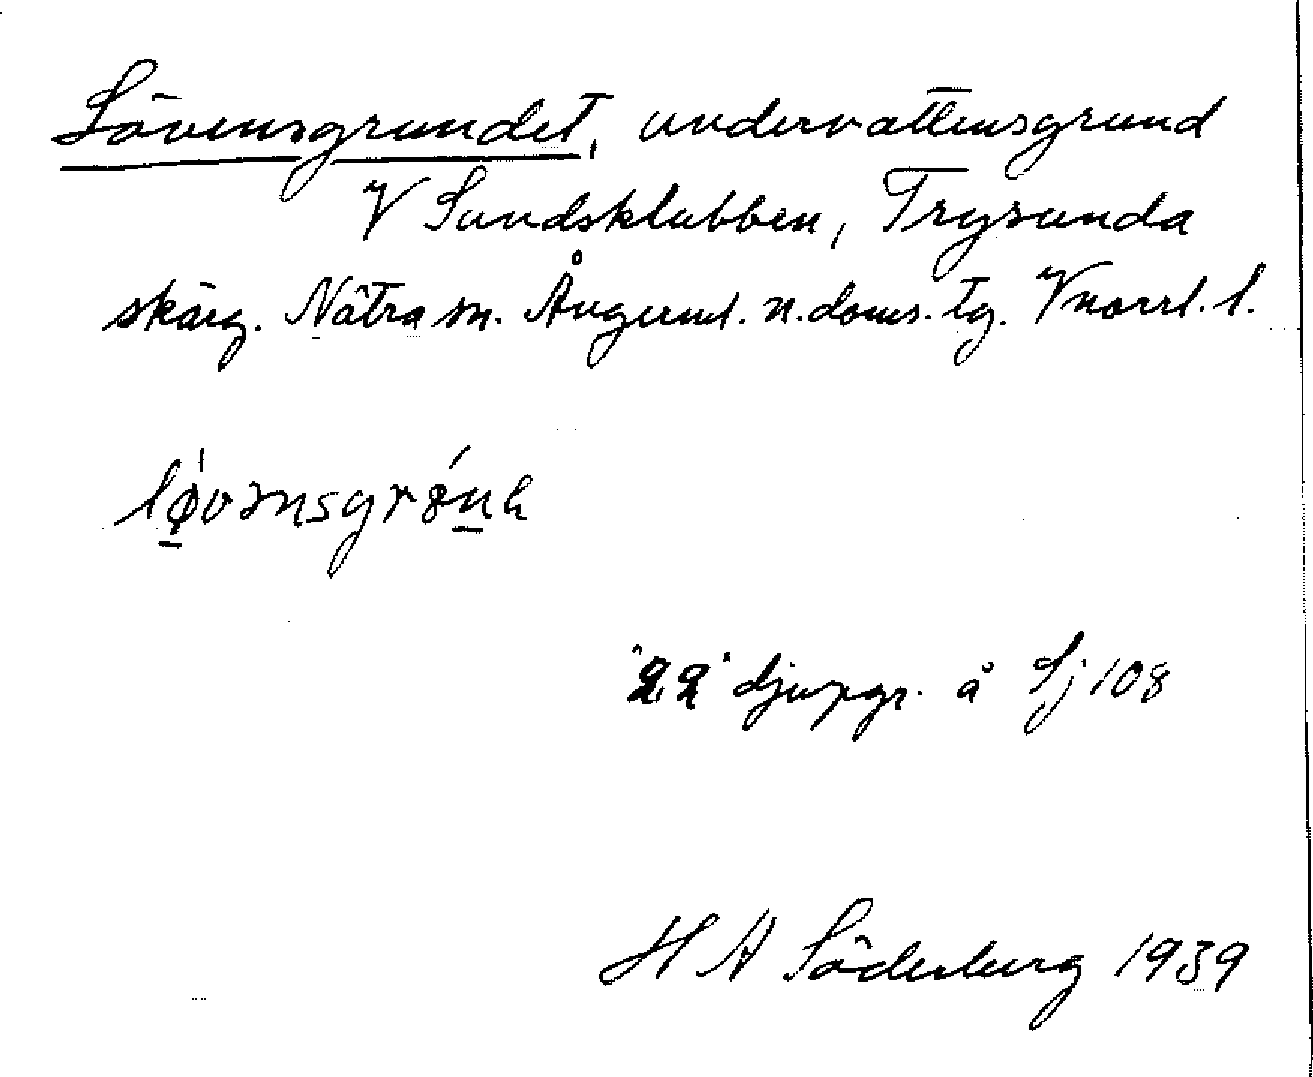 Lövensgrundet, undervattensgrund
V Sundsklubben, Trysunda
skärg. Nätra sn. Ångerml. n. doms. tg. Vnorrl. l.
lø̀vənsgrɵ́nḁ
"22" djupgr. å Sj 108
H A Söderberg 1939